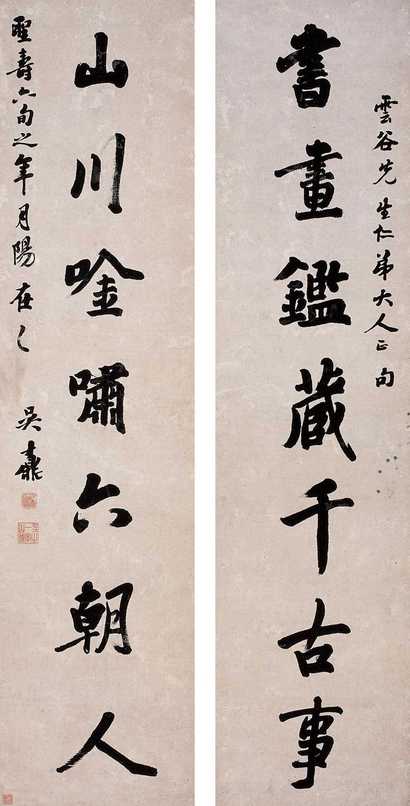 雲谷先生仁弟大人正句
書畫鑑藏千古事
山川唫嘯六朝人
聖壽六旬之年月陽在
吳鼒